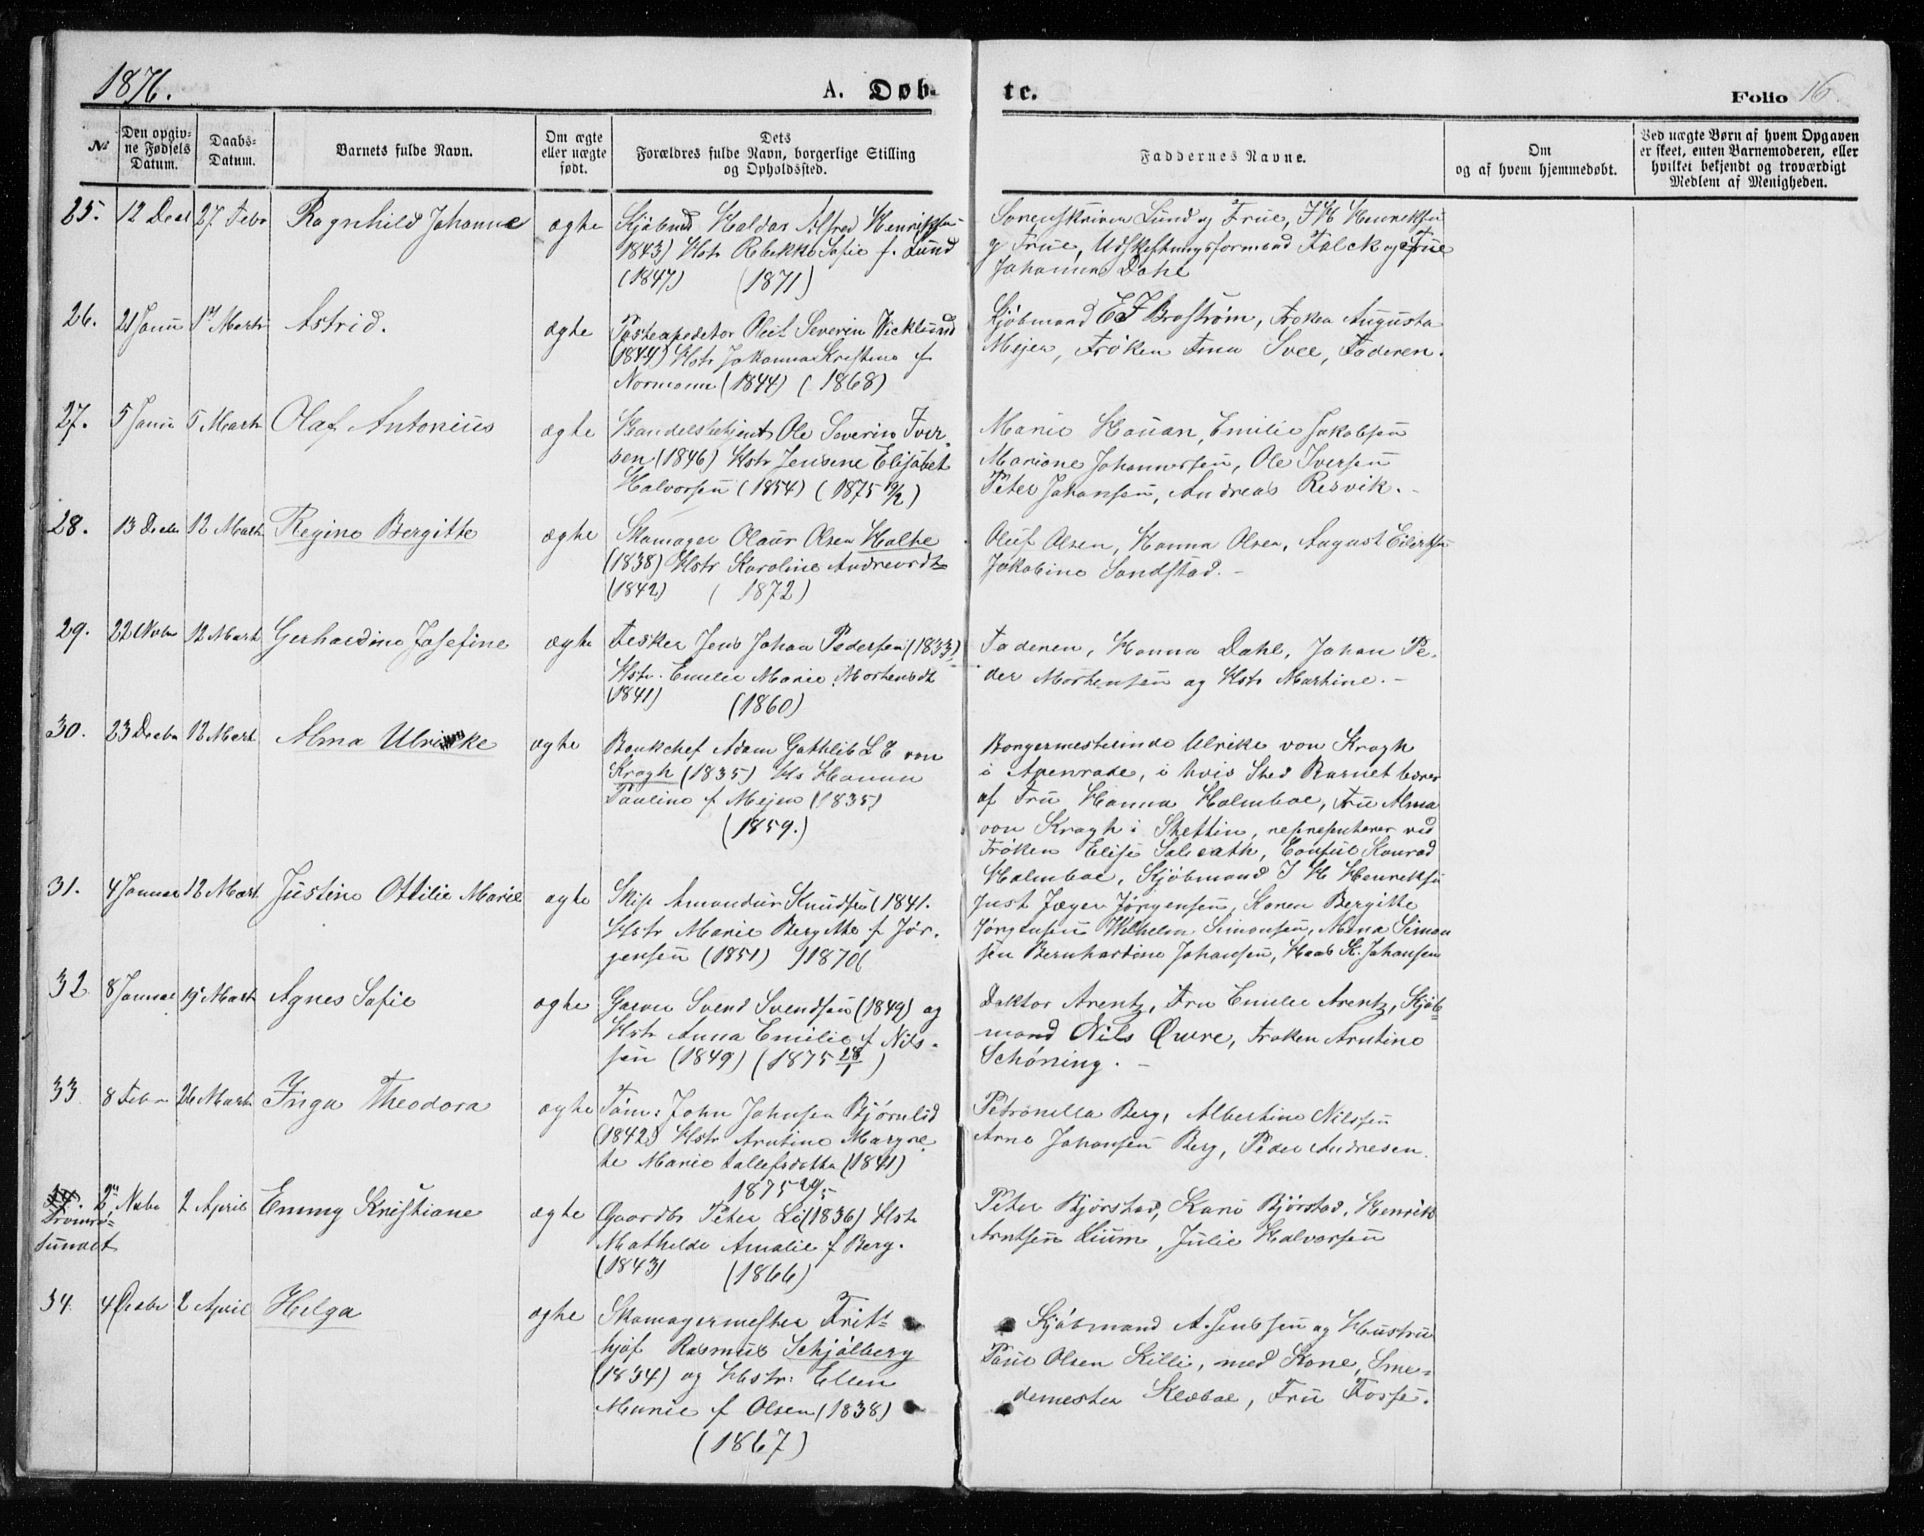 1876.
A. Døb-
te.
Folio 16.
No
Den opgivne Fødsels Datum.
Daabs-Datum.
Barnets fulde Navn.
Om ægte eller uægte født.
Dets Forældres fulde Navn, borgerlige Stilling og Opholdssted.
Faddernes Navne.
Om og af hvem hjemmedøbt.
Ved uægte Børn af hvem Opgaven er skeet, enten Barnemoderen, eller hvilket bekjendt og troværdigt Medlem af Menigheden.
25. 12 Dec 27 Febr Ragnhild Johanne ægte Kjøbmd Haldor Alfred Henriksen
1843) Hstr Rebekka Sofie f. Lund
(1847) (1871)
Sorenskriver Lund og Frue, J H Henriksen
og Frue, Udskiftningsformand Falck og Frue
Johanna Dahl
26. 21 Janu 1st Marts Astrid. ægte Postexpeditør Olet Severin Wicklund
(1844) Hstr Johanna Kristine f
Normann (1844) (1868)
Kjøbmand E F Brostrøm, Frøken Augusta
Mejer, Frøken Tina Svee, Faderen.
27. 5 Janu 5 Marts Olaf Antonius ægte Handelsbetjent Ole Severin Iver
sen (1846) Hstr Jensine Elisabet
Halvorsen (1854) (1875 19/12)
Marie Hauan, Emilie Jakobsen
Mariane Johannessen, Ole Iversen
Peter Johansen, Andreas Resvik.
28. 13 Decbr 12 Marts Regine Bergitte ægte Skomager Olaus Olsen Halse
(1838) Hstr Karoline Andreasdt
(1842) (1872)
Oluf Olsen, Hanna Olsen, August Eilertsen
Jakobine Sandstad.
29. 22 Novbr 12 Mart Gerhardine Josefine ægte Fisker Jens Johan Pedersen (1833)
Hstr. Emelie Marie Mortensdt
(1841) (1860)
Faderen, Hanna Dahl, Johan Pe-
der Mortensen og Hstr Martine.
30. 23 Decbr 12 Mart Alma Ulrikke ægte Bankchef Adam Gothlib L E von
Krogh (1835) Hs Hanna
Pauline f Mejer (1835)
(1859.)
Borgermesterinde Ulrike von Krogh
i Apenrade, i hvis Sted Barnet bæres
af Fru Hanna Holmboe, Fru Alma
von Krogh i Stettin, repræsenteres ved
Frøken Elise Salicath, Consul Konrad
Holmboe, Kjøbmand J H Henriksen
31. 4 Januar 12 Mart Justine Ottilie Marie ægte Skip Amandus Knudsen (1841.
Hstr Marie Bergitte f Jør-
gensen (1851) (1870)
Just Jæger Jørgensen, Karen Bergitte
Jørgensen Wilhelm Simonsen, Mina Simon
sen Bernhardine Johansen, Haab K. Johansen
32 8 Januar 19 Mart Agnes Sofie ægte Garver Svend Svendsen (1849) og
Hstr Anna Emilie f Nils-
sen (1849) (1875 28/1)
Doktor Arentz, Fru Emilie Arentz, Kjøb-
mand Nils Qwre, Frøken Arntine
Schöning.
33 8 Febr 26 Marts Inga Theodora ægte Tøm: John Johnsen Bjørnlid
(1842) Hstr Arntine Margre
te Marie tallefsdatter (1841)
1875 29/5
Petronella Berg, Albertine Nilssen
Arne Johansen Berg, Peder Andresen.
Tromsø-
sundet
2 Novbr 2 April Emmy Kristiane ægte Gaardbr Peter Li (1836) Hstr
Mathilde Amalie f Berg.
(1843) (1866)
Peter Bjørstad, Karie Bjørstad, Henrik
Arntsen Lium, Julie Halvorsen
34. 4 Decbr 2 April Helga ægte Skomagermester Frit-
hjof Rasmus Schjølberg
(1834) og Hstr: Ellen
Marie f Olsen (1838)
(1867)
Kjøbmand A. Jensen og Hustru
Paul Olsen Killi, med Kone, Sme-
demester Klæboe, Fru Fosse.